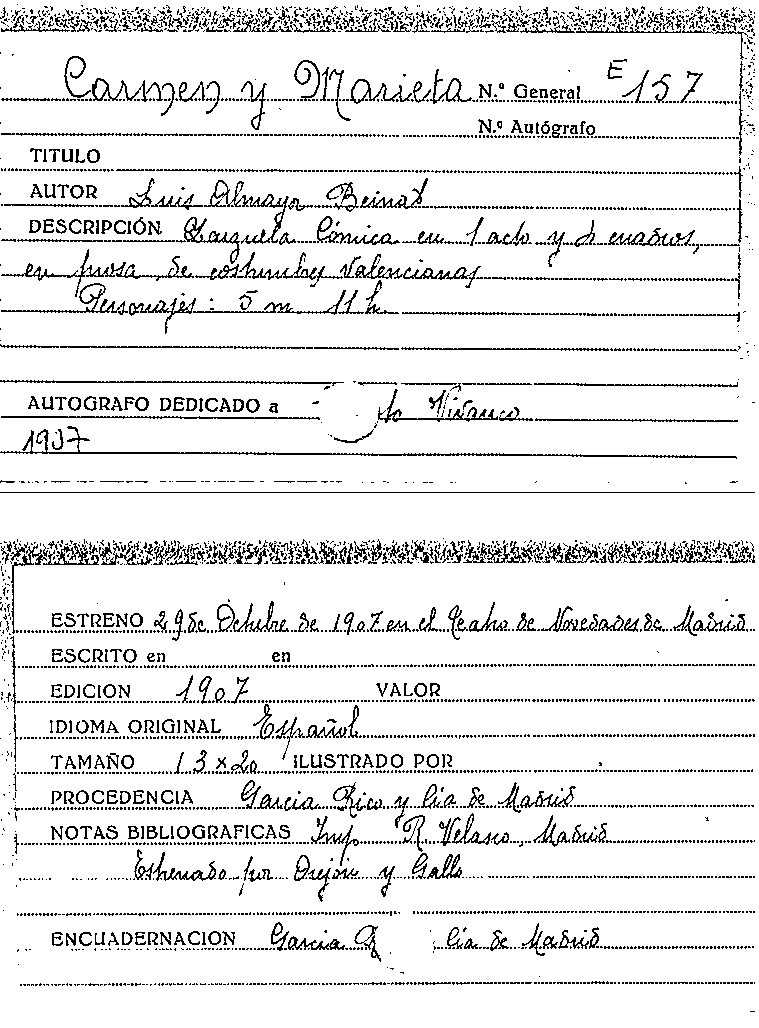 Carmen y Marieta N.º General E 157
N.º Autógrafo
TITULO
AUTOR Luis Almayor Beinat
DESCRIPCIÓN Zarzuela Cómica en 1 acto y 2 cuadros,
en prosa, de costumbres Valencianas
Personajes: 5 m. 11 h.
AUTOGRAFO DEDICADO a to Vivanco
1907
ESTRENO 29 de Octubre de 1907 en el Teatro de Novedades de Madrid
ESCRITO en en
EDICION 1907 VALOR
IDIOMA ORIGINAL Español
TAMAÑO 13 x 20 ILUSTRADO POR
PROCEDENCIA Garcia Rico y Cia de Madrid
NOTAS BIBLIOGRAFICAS Imp. R. Velasco, Madrid
Estrenado por Orejón y Gallo
ENCUADERNACION Garcia R Cia de Madrid